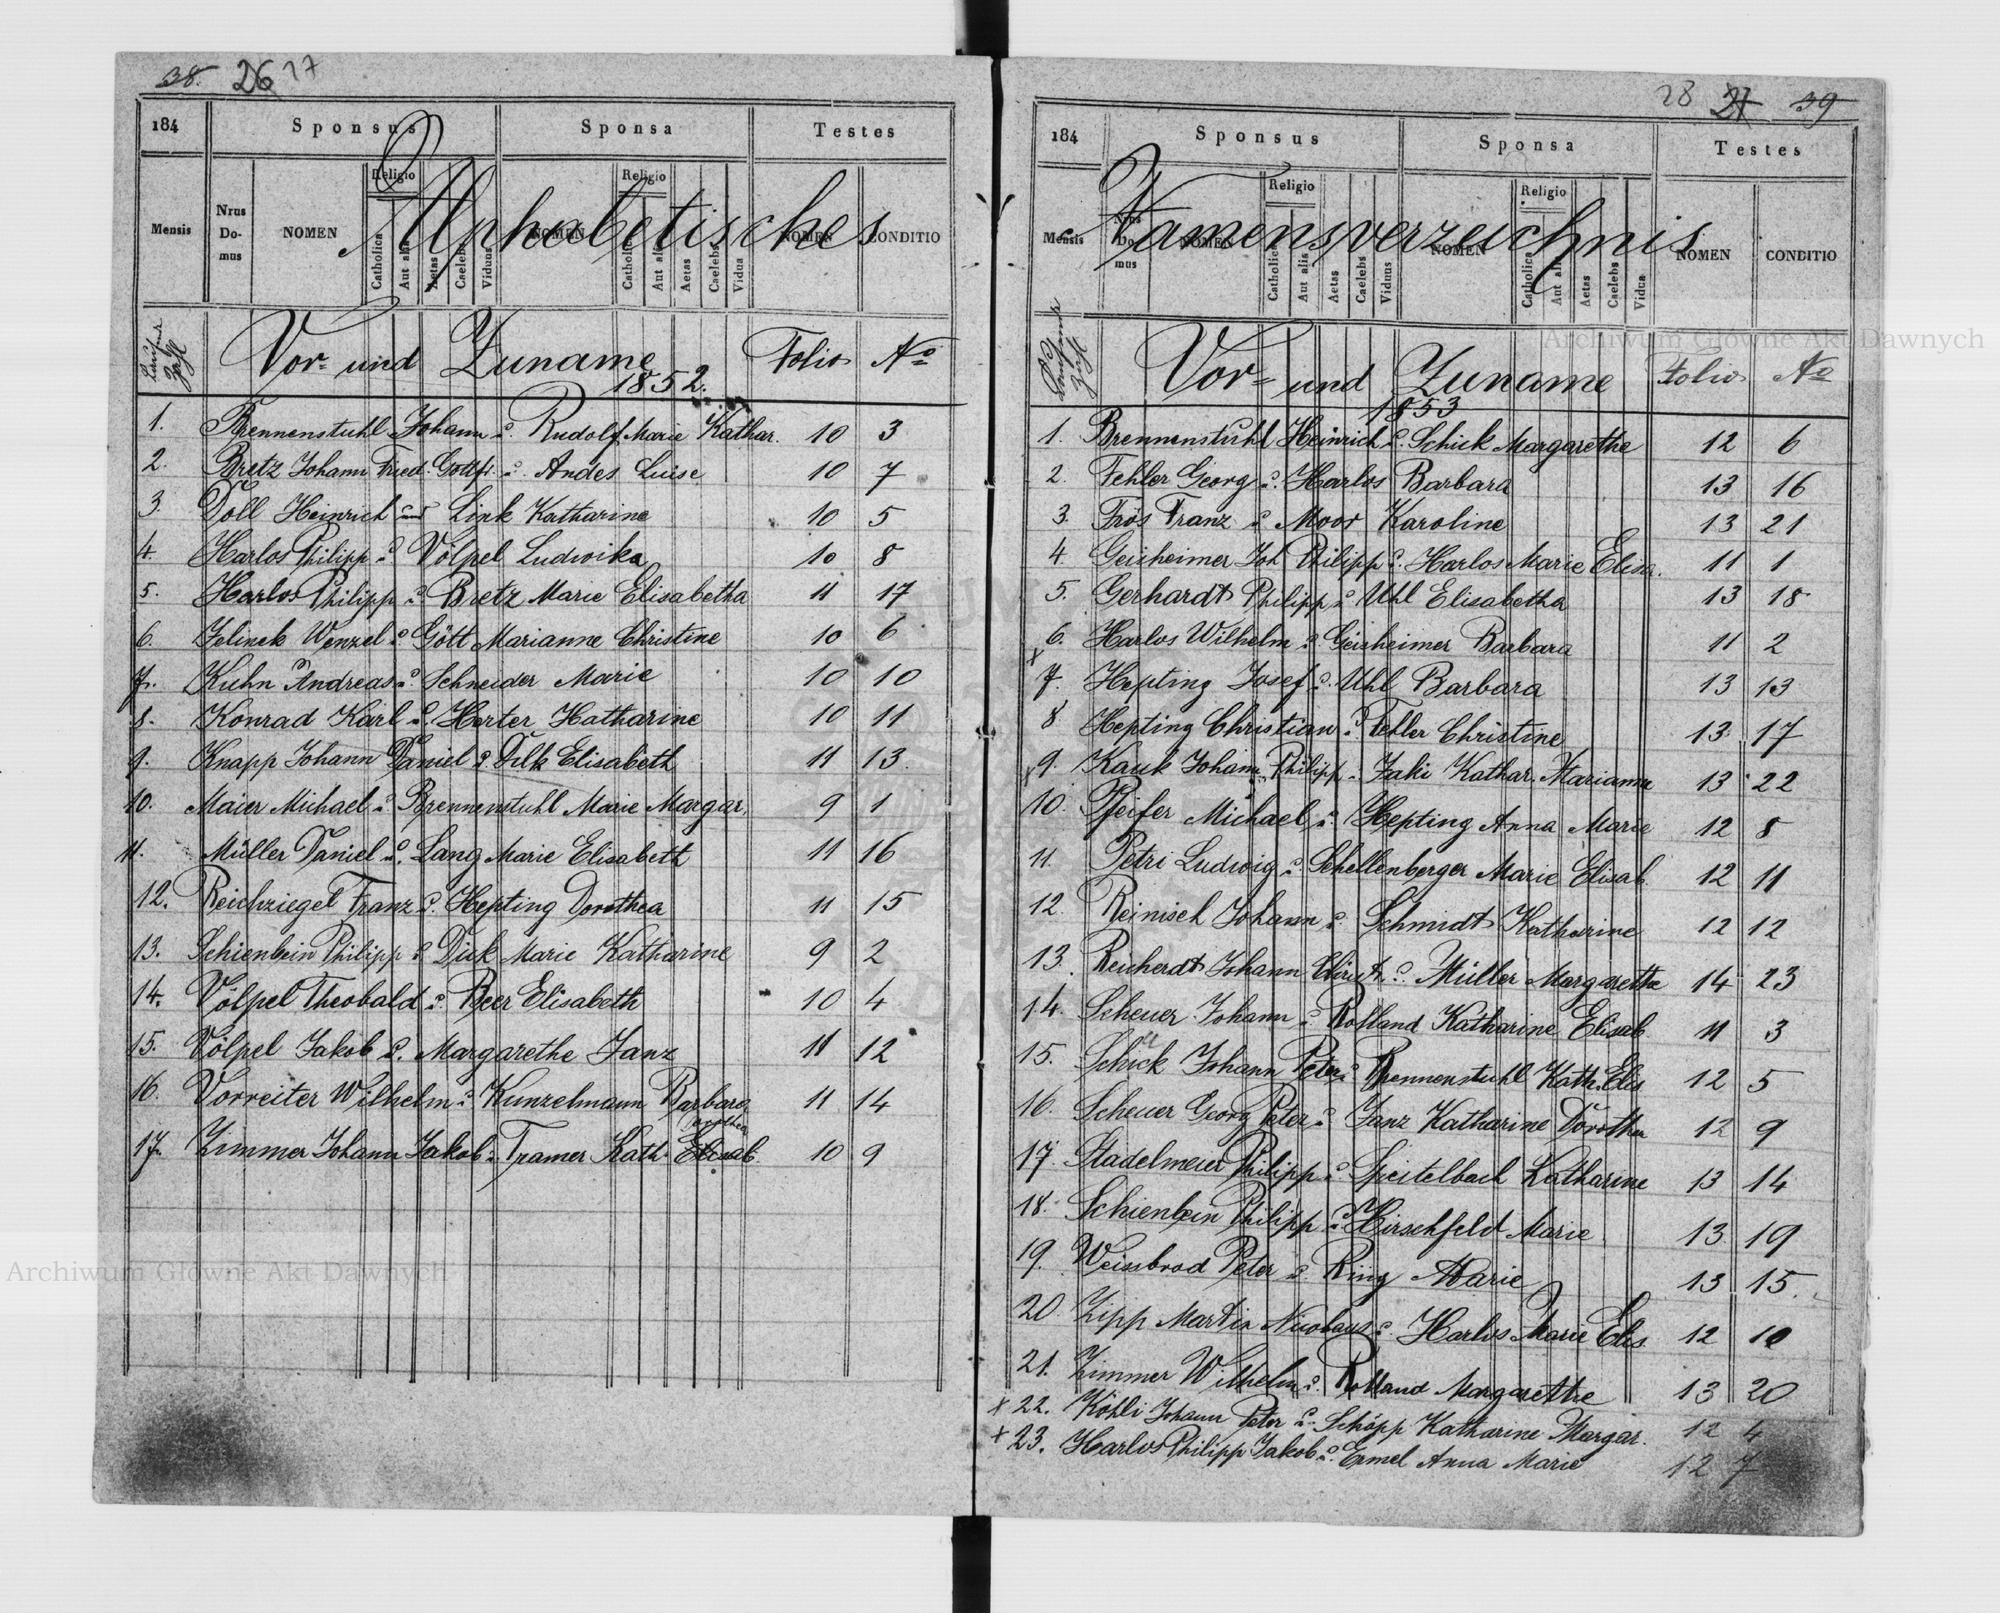 38. 26 27
184 Sponsus Sponsa Testes
Mensis Nrus Do- mus NOMEN Religio Catholica Aut alia Aetas Caelebs Viduus NOMEN Religio Catholica Aut alia Aetas Caelebs Vidua NOMEN CONDITIO
Alphabetisches
Laufende Zahl Vor- und Zuname Folio No
1852.
1. Brennenstuhl Johann u. Rudolf Marie Kathar. 10 3
2. Bretz Johann Fried. Gottfr. u. Andes Luise 10 7
3. Doll Heinrich und Link Katharine 10 5
4. Harlos Philipp u. Völpel Ludwika 10 8
5. Harlos Philipp u. Bretz Marie Elisabetha 11 17
6. Jelinek Wenzel u. Gött Marianne Christine 10 6
7. Kuhn Andreas u. Schneider Marie 10 10
8. Konrad Karl u. Harter Katharine 10 11
9. Knapp Johann Daniel u. Filk Elisabeth 11 13
10. Maier Michael u. Brennenstuhl Marie Margar. 9 1
11. Müller Daniel u. Lang Marie Elisabeth 11 16
12. Reichziegel Franz u. Hepting Dorothea 11 15
13. Schienbein Philipp u. Dick Marie Katharine 9 2
14. Völpel Theobald u. Beer Elisabeth 10 4
15. Völpel Jakob u. Margarethe Janz 11 12
16. Vorreiter Wilhelm u. Kunzelmann Barbara 11 14
Dorothea
17. Zimmer Johann Jakob u. Tramer Kath. Elisab. 10 9
28 27 39
184 Sponsus Sponsa Testes
Mensis Nrus Do- mus NOMEN Religio Catholica Aut alia Aetas Caelebs Viduus NOMEN Religio Catholica Aut alia Aetas Caelebs Vidua NOMEN CONDITIO
Namensverzeichnis
Laufende Zahl Vor- und Zuname Folio No
1853
1. Brennenstuhl Heinrich u. Schick Margarethe 12 6
2. Fehler Georg u. Harlos Barbara 13 16
3. Frös Franz u. Moor Karoline 13 21
4. Geisheimer Joh. Philipp u. Harlos Marie Elisa. 11 1
5. Gerhardt Philipp u. Uhl Elisabetha 13 18
x 6. Harlos Wilhelm u. Geisheimer Barbara 11 2
7. Hepting Josef u. Uhl Barbara 13 13
8. Hepting Christian u. Fehler Christine 13 17
x 9. Kauk Johann Philipp u. Jaki Kathar. Marianna 13 22
10. Pfeifer Michael u. Hepting Anna Marie 12 8
11. Petri Ludwig u. Schellenberger Marie Elisab. 12 11
12. Reinisch Johann u. Schmidt Katharine 12 12
13. Reicherdt Johann u. Müller Margarethe 14 23
14. Scheuer Johann u. Rolland Katharine Elisab. 11 3
15. Schick Johann Peter u. Brennenstuhl Kath. Elis 12 5
16. Scheuer Georg Peter u. Janz Katharine Dorothea 12 9
17. Stadelmeier Philipp u. Speitelbach Katharine 13 14
18. Schienbein Philipp u. Hirschfeld Marie 13 19
19. Weissbrod Peter u. Ring Marie 13 15.
20. Zipp Martin Nicolaus u. Harlos Marie Elis 12 10
21. Zimmer Wilhelm u. Rolland Margarethe 13 20
x 22. Köhli Johann Peter u. Schöpp Katharine Margar. 12 4
x 23. Harlos Philipp Jakob u. Ermel Anna Marie 12 7
Archiwum Główne Akt Dawnych
Archiwum Główne Akt Dawnych